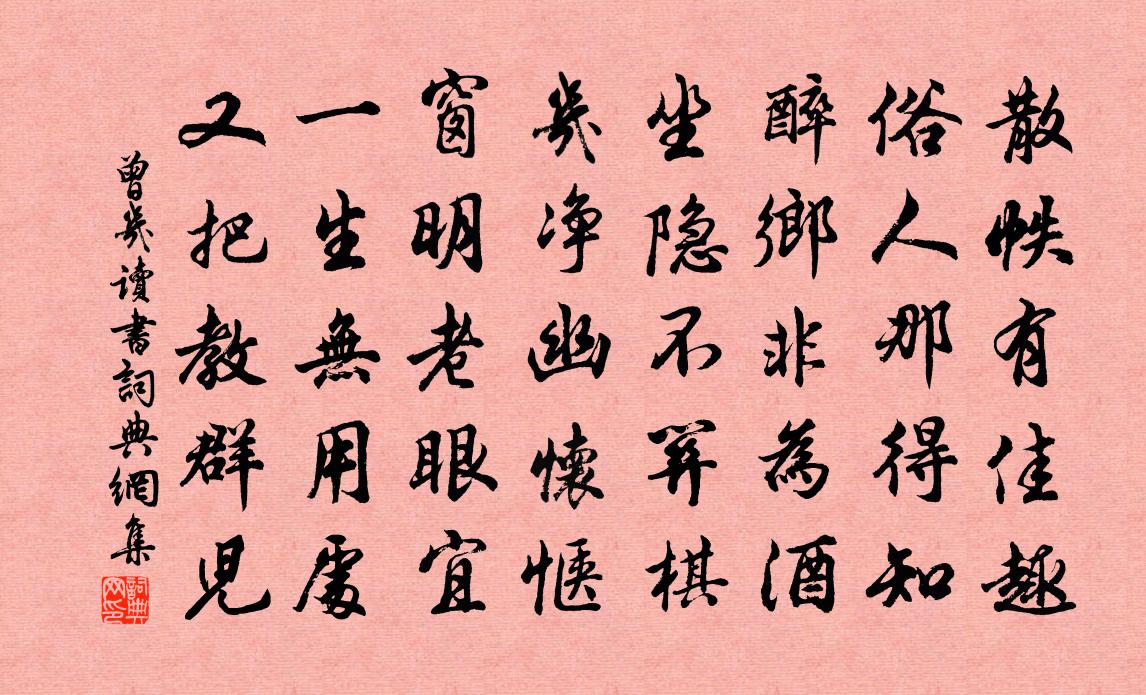 散帙有佳趣
俗人那得知
醉鄉非為酒
坐隐不關棋
幾净幽懷愜
窗明老眼宜
一生無用處
又把教群兒
曾幾讀書詞典網集
詞典网印